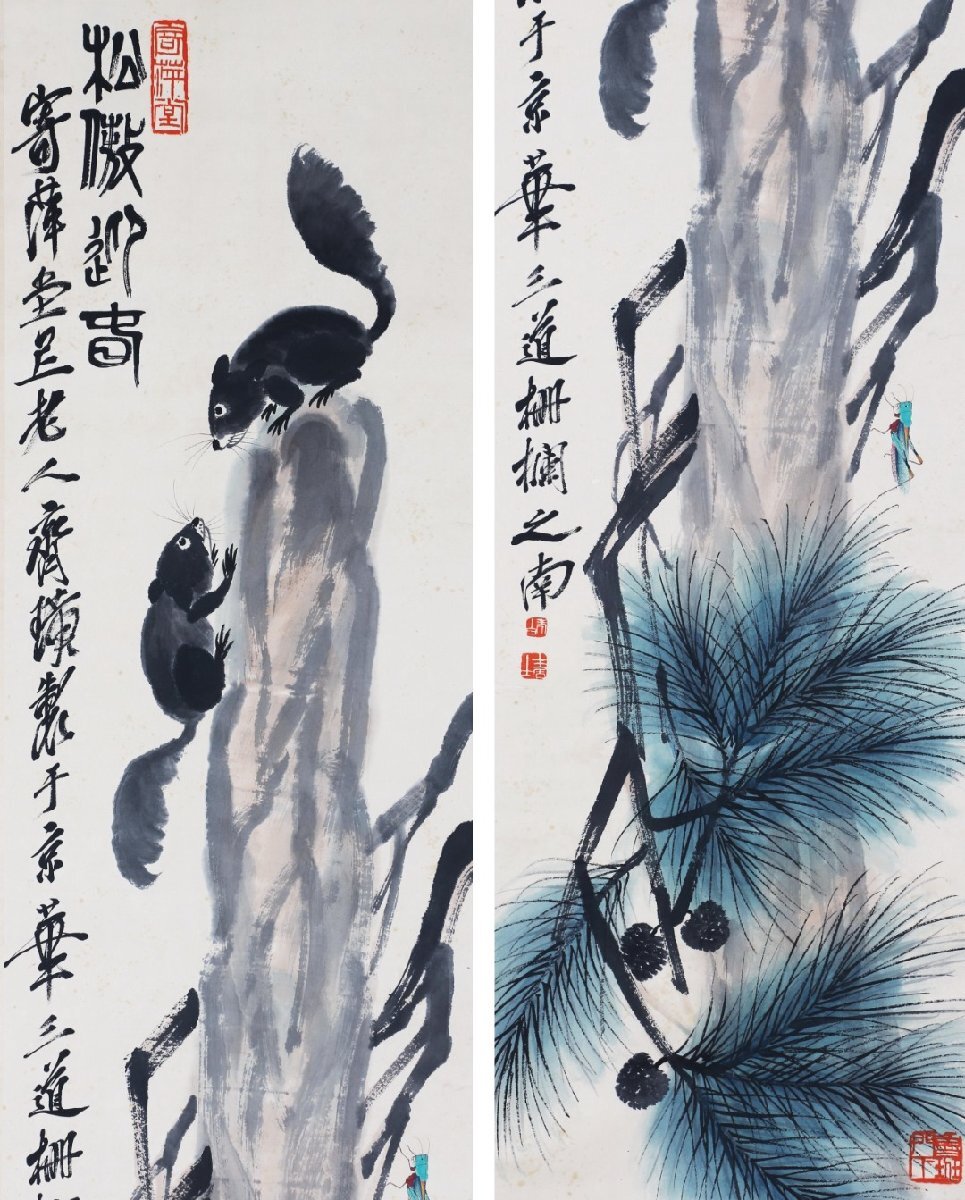 寄萍堂
松傲迎春
寄萍堂上老人齊璜製于京華三道柵
于京華三道柵欄之南